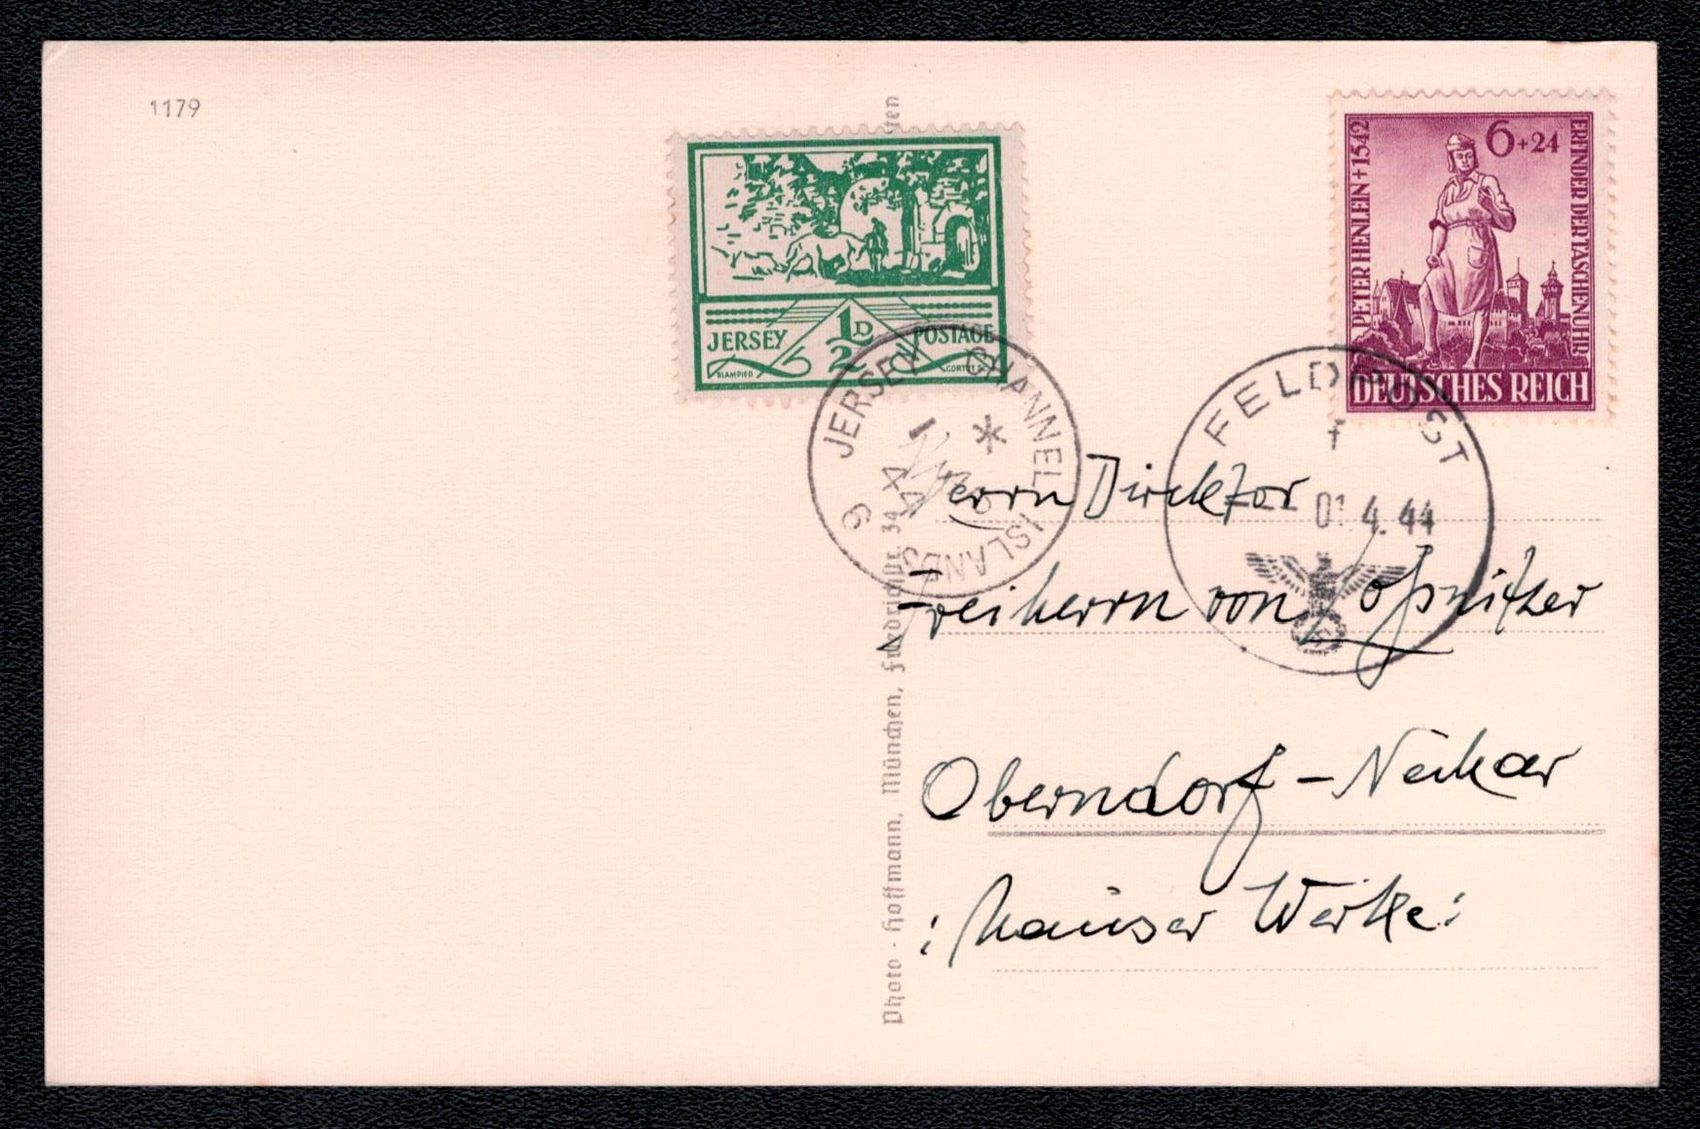 1179
JERSEY
½D
POSTAGE
BLAMPIED
PETER HENLEIN + 1542
6+24
ERFINDER DER TASCHENUHR
DEUTSCHES REICH
JERSEY CHANNEL ISLANDS
FELDPOST
f
01.4.44
Herrn Direktor
Freiherrn von
Oberndorf - Neckar
: Mauser Werke :
Photo · Hoffmann, München, Friedrichstr. 34